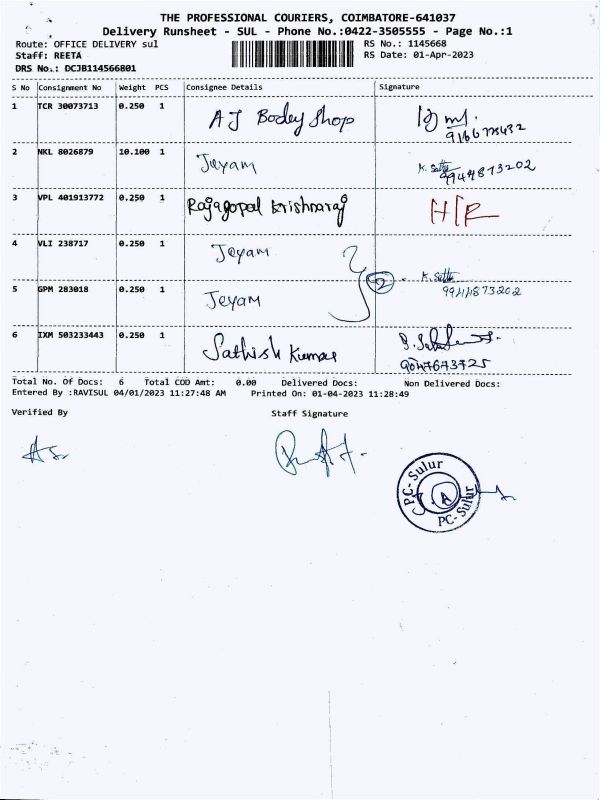 THE PROFESSIONAL COURIERS, COIMBATORE-641037
Delivery Runsheet - SUL - Phone No.:0422-3505555 - Page No.:1
Route: OFFICE DELIVERY sul
RS No.: 1145668
Staff: REETA
RS Date: 01-Apr-2023
DRS No.: DCJB114566801
S No Consignment No Weight PCS Consignee Details Signature
1 TCR 30073713 0.250 1 AJ Bodey Shop
2 NKL 8026879 10.100 1 Jeyam K. 9944873202
3 VPL 401913772 0.250 1 Rajagopal krishnaraj
4 VLI 238717 0.250 1 Jeyam
2 K.
5 GPM 283018 0.250 1 Jeyam 9944873202
6 IXM 503233443 0.250 1 Sathish Kumar
9047673725
Total No. Of Docs: 6 Total COD Amt: 0.00 Delivered Docs: Non Delivered Docs:
Entered By :RAVISUL 04/01/2023 11:27:48 AM Printed On: 01-04-2023 11:28:49
Verified By Staff Signature
PC- Sulur
A
PC- Sulur